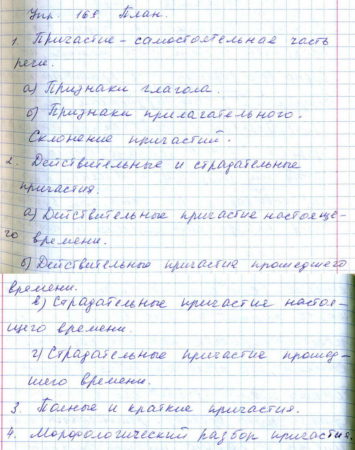 Упр. 169 План.
1. Причастие – самостоятельная часть
речи.
а) Признаки глагола.
б) Признаки прилагательного.
Склонение причастий.
2. Действительные и страдательные
причастия.
а) Действительные причастие настояще-
го времени.
б) Действительные причастия прошедшего
времени.
в) Страдательные причастие настоя-
щего времени.
г) Страдательные причастие прошед-
шего времени.
3. Полные и краткие причастия.
4. Морфологический разбор причастия.